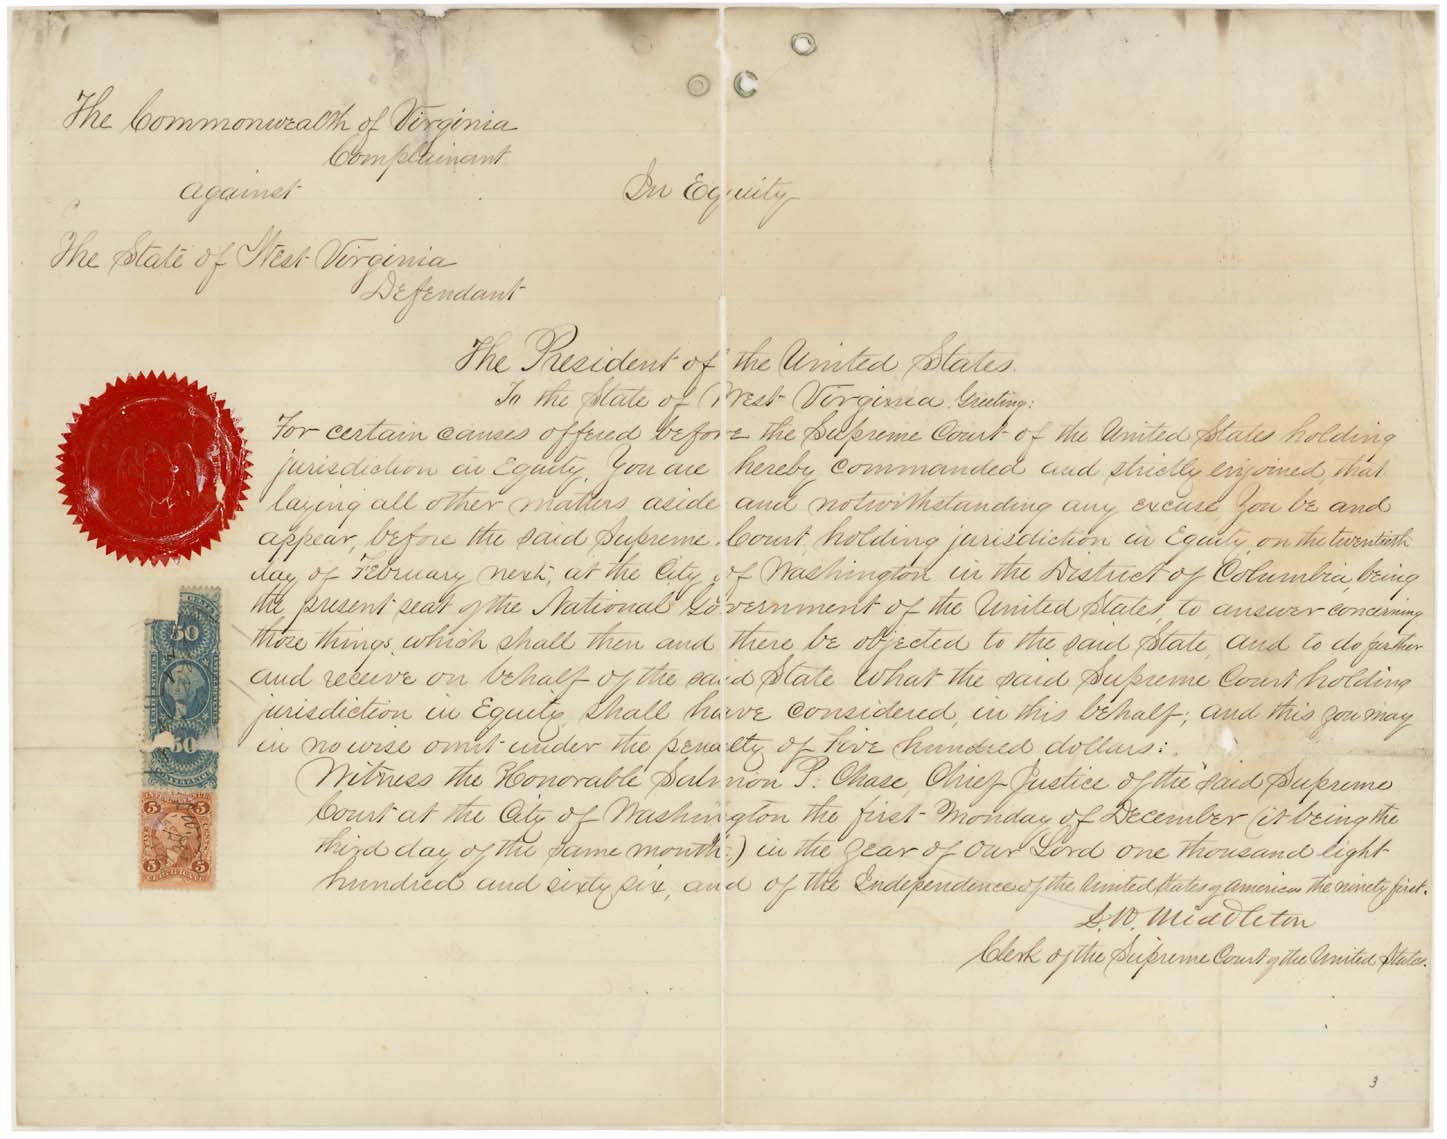 The Commonwealth of Virginia
Complainant
against
In Equity
The State of West Virginia
Defendant
The President of the United States.
To the State of West Virginia Greeting:
For certain causes offered before the Supreme Court of the United States holding
jurisdiction in Equity, You are hereby commanded and strictly enjoined, that
laying all other matters aside and notwithstanding any excuse You be and
appear, before the said Supreme Court, holding jurisdiction in Equity, on the twentieth
day of February next, at the City of Washington in the District of Columbia, being
the present seat of the National Government of the United States, to answer concerning
those things, which shall then and there be objected to the said State, and to do further
and receive on behalf of the said State what the said Supreme Court holding
jurisdiction in Equity, shall have considered, in this behalf; and this you may
in no wise omit under the penalty of five hundred dollars:
Witness the Honorable Salmon P. Chase, Chief Justice of the said Supreme
Court at the City of Washington the first Monday of December (it being the
third day of the same month,) in the year of our Lord one thousand eight
hundred and sixty six, and of the Independence of the United States of America the ninety first.
D. W. Middleton
Clerk of the Supreme Court of the United States.
50
50
5 5
5 5
CERTIFICATE
3